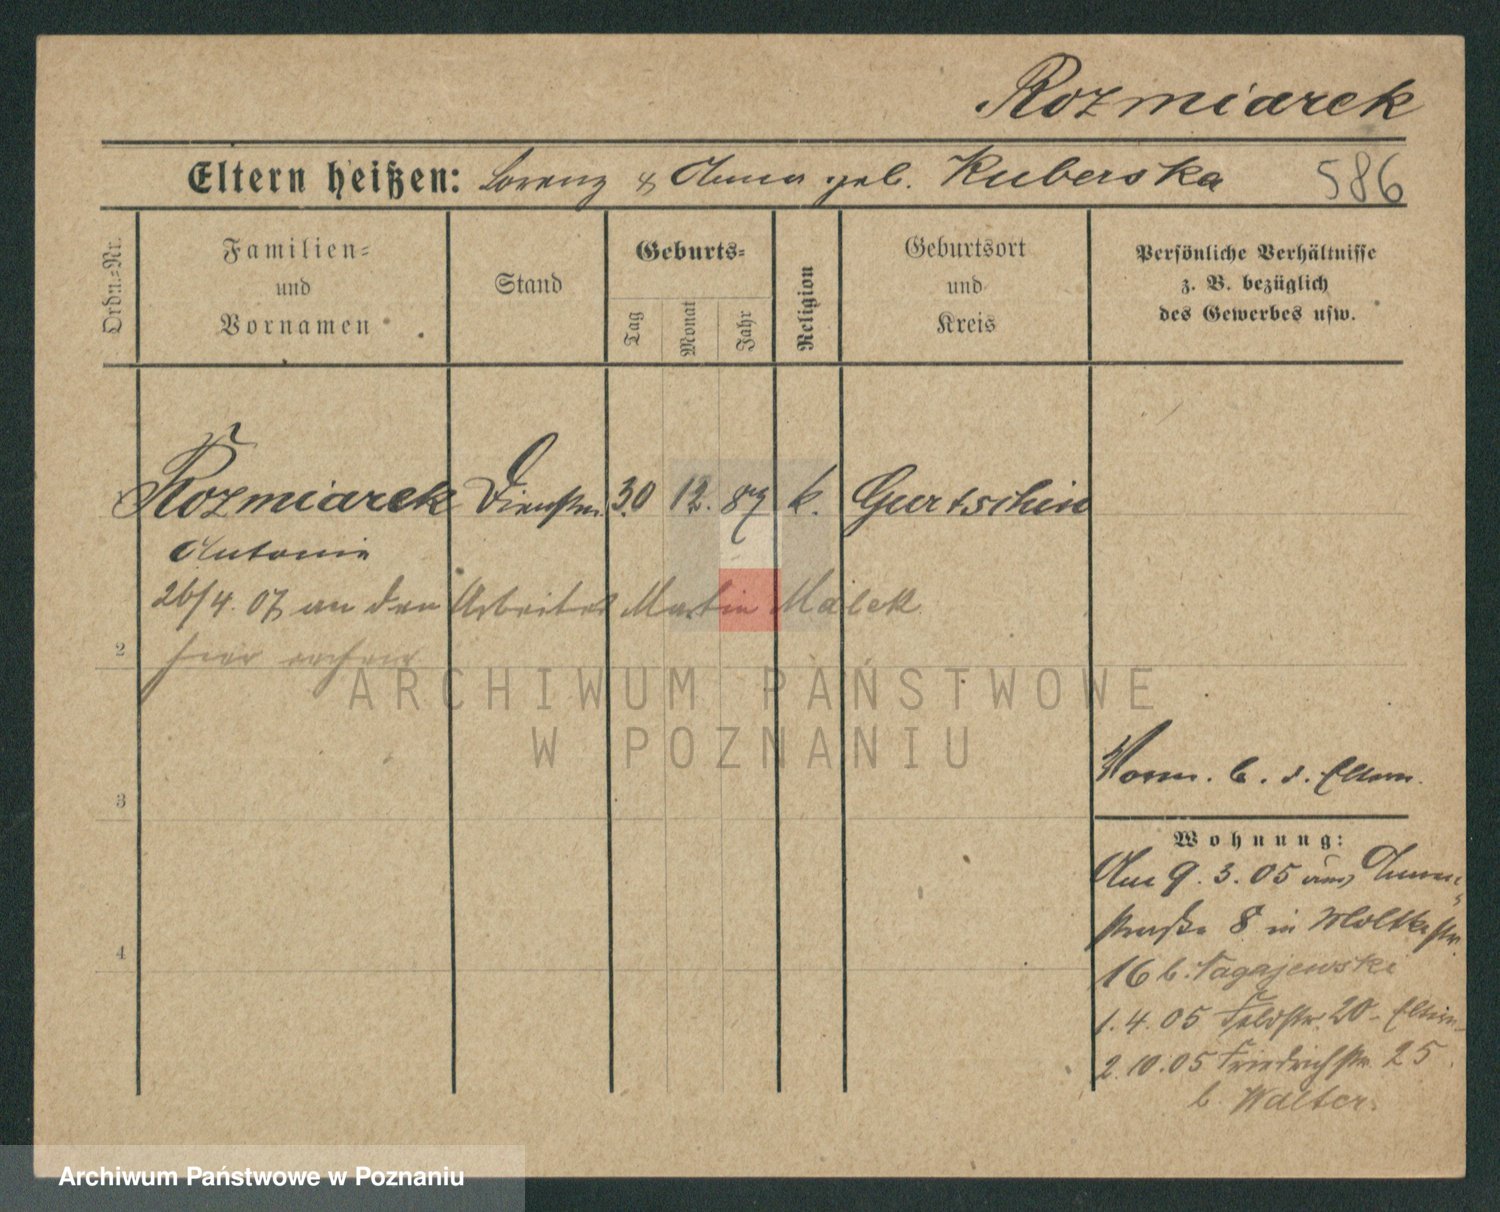 Rozmiarek
Eltern heißen: Lorenz & Anna geb. Kuberska 586
Ordn.=Nr.
Familien=
und
Vornamen
Stand
Geburts=
Tag
Monat
Jahr
Religion
Geburtsort
und
Kreis
Persönliche Verhältnisse
z. B. bezüglich
des Gewerbes usw.
Rozmiarek Dienstm. 30 12. 87 k. Gurtschin
Antonie
26/4. 07 an den Arbeiter Martin Malek
2 hier
ARCHIWUM PAŃSTWOWE
W POZNANIU
3
Vorm. b. d. Eltern.
Wohnung:
Am 9. 3. 05 aus
straße 8 in Moltkestr.
4
16 b. Tagajewski
1. 4. 05 Feldstr. 20 - Eltern
2. 10. 05 Friedrichstr. 25
b. Walter.
Archiwum Państwowe w Poznaniu